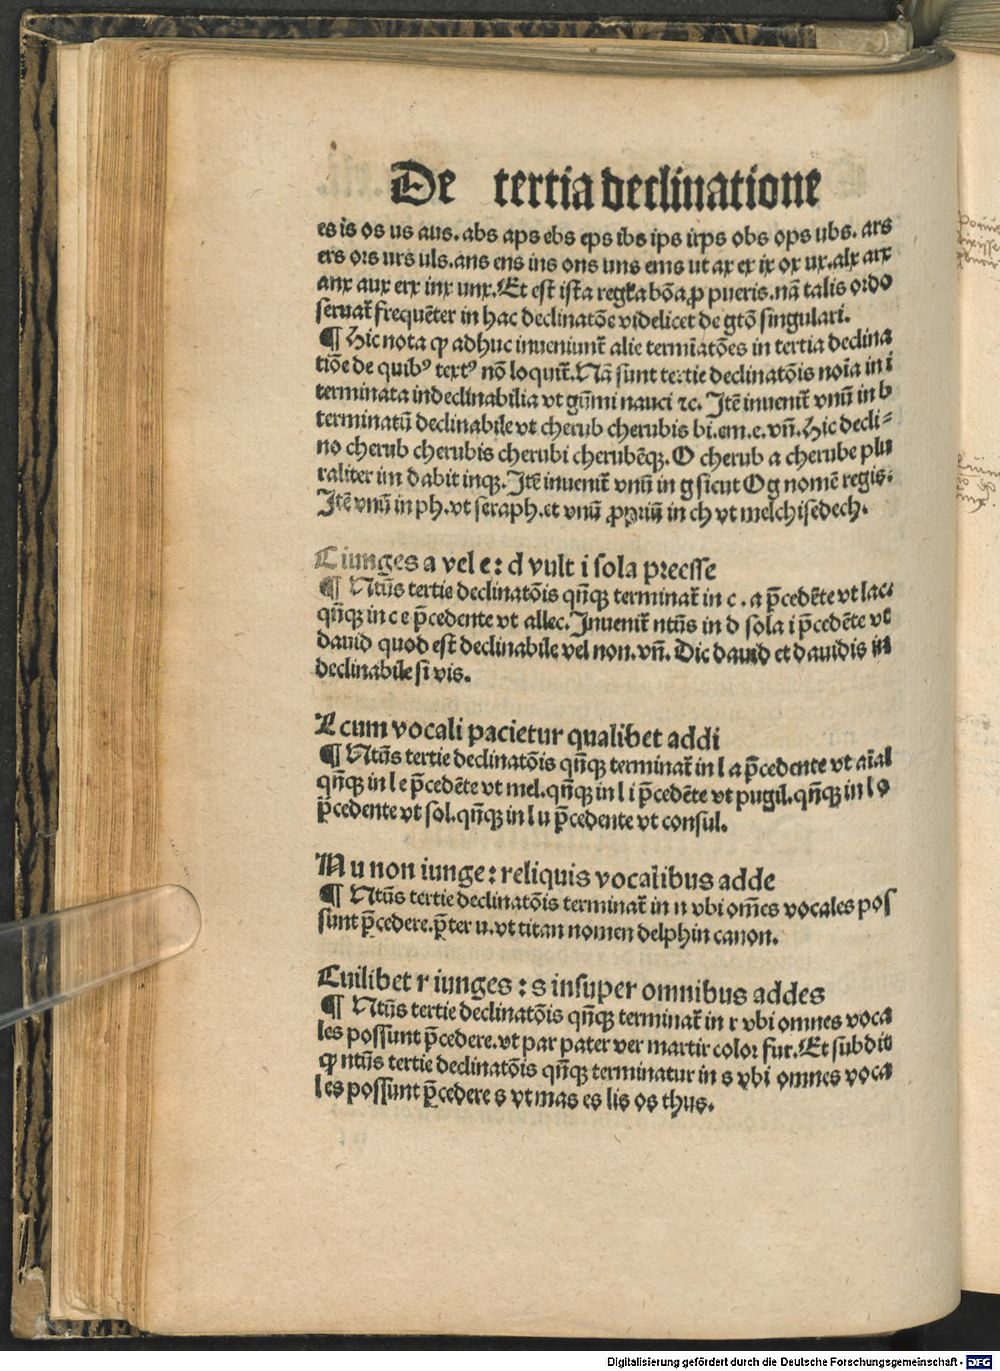 De tertia declinatione
es is os us aus. abs aps ebs eps ibs ips irps obs ops ubs. ars
ers ors urs uls. ans ens ins ons uns ems ut ax ex ix ox ux. alx arx
anx aux erx inx unx. Et est ista regła bōa ꝓ pueris. nā talis ordo
seruat᷑ frequēter in hac declinatōe videlicet de gtō singulari.
¶ Hic nota ꝙ adhuc inueniunt᷑ alie termīatōes in tertia declina
tiōe de quibꝰ textꝰ nō loquit᷑. Nā sunt tertie declinatōis noīa in i
terminata indeclinabilia vt gūmi nauci ⁊c. Itē inuenit᷑ vnū in b
terminatū declinabile vt cherub cherubis bi. em. e. vn̄. Hic decli⸗
no cherub cherubis cherubi cherubēqꝫ. O cherub a cherube plu
raliter im dabit inqꝫ. Itē inuenit᷑ vnū in g sicut Og nomē regis.
Itē vnū in ph. vt seraph. et vnū ꝓpriū in ch vt melchisedech.
C iunges a vel e: d vult i sola preesse
¶ Ntūs tertie declinatōis qn̄qꝫ terminat᷑ in c. a p̄cedēte vt lac.
qn̄qꝫ in c e p̄cedente vt allec. Inuenit᷑ ntūs in d sola i p̄cedēte vt
dauid quod est declinabile vel non. vn̄. Dic dauid et dauidis in
declinabile si vis.
L cum vocali pacietur qualibet addi
¶ Ntūs tertie declinatōis qn̄qꝫ terminat᷑ in l a p̄cedente vt aīal
qn̄qꝫ in l e p̄cedēte vt mel. qn̄qꝫ in l i p̄cedēte vt pugil. qn̄qꝫ in l o
p̄cedente vt sol. qn̄qꝫ in l u p̄cedente vt consul.
N u non iunge: reliquis vocalibus adde
¶ Ntūs tertie declinatōis terminat᷑ in n vbi om̄es vocales pos
sunt p̄cedere. p̄ter u. vt titan nomen delphin canon.
Cuilibet r iunges: s insuper omnibus addes
¶ Ntūs tertie declinatōis qn̄qꝫ terminat᷑ in r vbi omnes voca
les possunt p̄cedere. vt par pater ver martir color fur. Et subdit
ꝙ ntūs tertie declinatōis qn̄qꝫ terminatur in s vbi omnes voca
les possunt p̄cedere s vt mas es lis os thus.
Digitalisierung gefördert durch die Deutsche Forschungsgemeinschaft - DFG